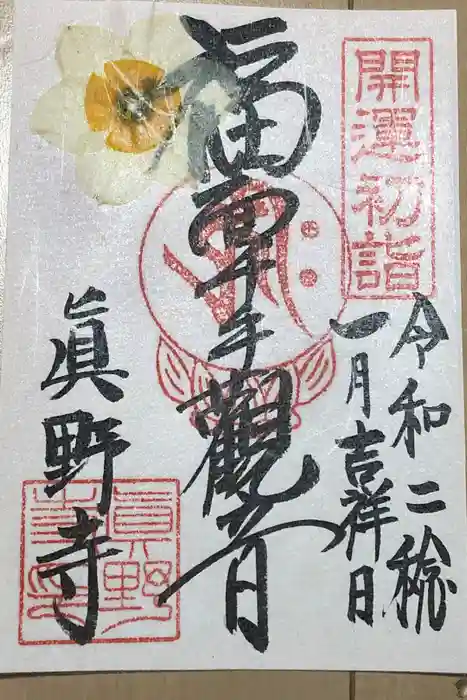 開運初詣
令和二稔
一月吉祥日
福富千手觀音
眞野寺